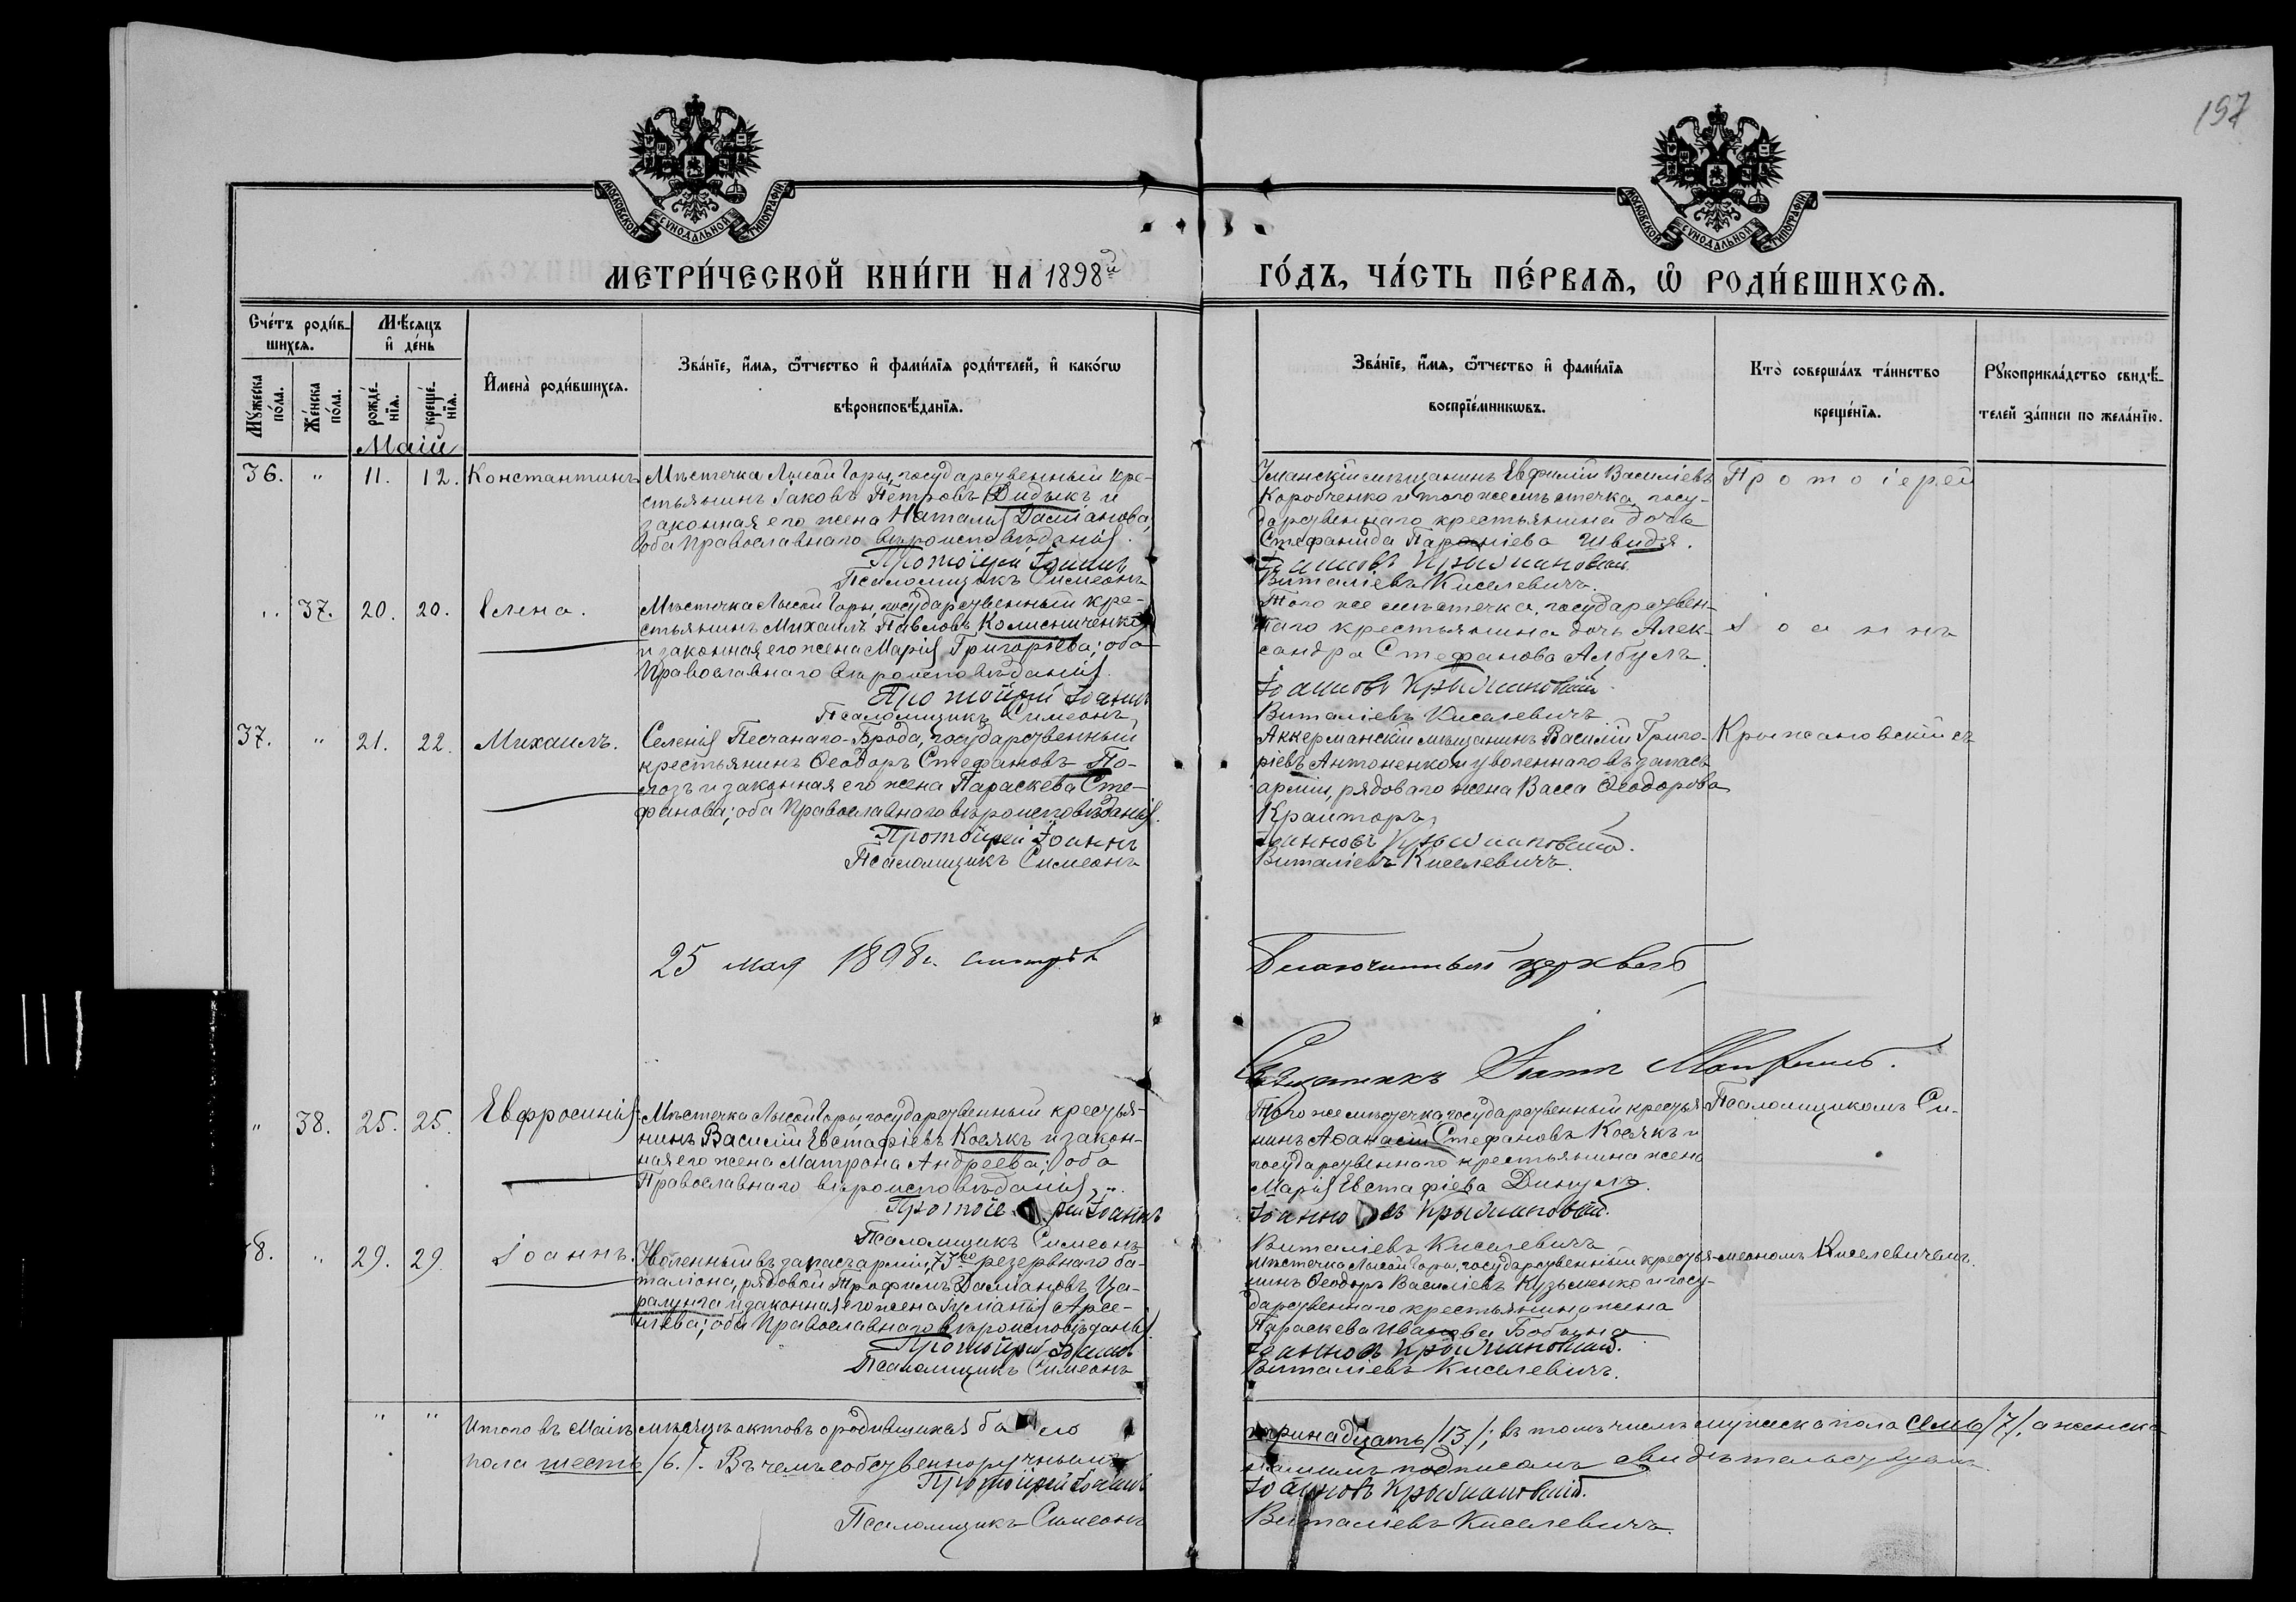 157
МОСКОВСКОЙ СѴНОДАЛЬНОЙ ТИПОГРАФІИ
МОСКОВСКОЙ СѴНОДАЛЬНОЙ ТИПОГРАФІИ
МЕТРИ́ЧЕСКОЙ КНИ́ГИ НА 1898й
ГО́ДЪ, ЧА́СТЬ ПЕ́РВАЯ, Ѡ҆ РОДИ́ВШИХСЯ.
Сче́тъ роди́в-
шихся.
Мѣ́сяцъ
и҆ де́нь
Мꙋ́жеска по́ла.
Же́нска по́ла.
рожде́-
нїя.
креще́-
нїя.
И҆мена̀ роди́вшихся.
Зва́нїе, и҆́мя, ѻ҆́тчество и҆ фами́лїя роди́телей, и҆ како́гѡ
вѣроисповѣ́данїя.
Зва́нїе, и҆́мя, ѻ҆́тчество и҆ фами́лїя
воспрїе́мникѡвъ.
Кто̀ соверша́лъ та́инство
креще́нїя.
Рꙋкоприкла́дство свидѣ́-
телей за́писи по жела́нїю.
Маій
36. " 11. 12. Константинъ
Мѣстечка Лысой Горы, государственный кре-
стьянинъ Іаковъ Петровъ Дидыкъ и
законная его жена Наталія Даміанова;
оба Православнаго вѣроисповѣданія.
Протоіерей Іоаннъ
Псаломщикъ Симеонъ
Уманскій мѣщанинъ Евфимій Василіевъ
Коробченко и того же мѣстечка, госу-
дарственнаго крестьянина дочь
Стефанида Швидя.
Іоанновъ Крыжановскій.
Виталіевъ Киселевичъ.
Протоіерей
" 37. 20. 20. Елена.
Мѣстечка Лысой Горы, государственный кре-
стьянинъ Михаилъ Павловъ Колисниченко
и законная его жена Марія Григоріева; оба
Православнаго вѣроисповѣданія.
Протоіерей Іоаннъ
Псаломщикъ Симеонъ
Того же мѣстечка, государствен-
наго крестьянина дочь Алек-
сандра Стефанова Албулъ.
Іоанновъ Крыжановскій.
Виталіевъ Киселевичъ
Іоаннъ
37. " 21. 22. Михаилъ.
Селенія Песчанаго-Брода, государственный
крестьянинъ Ѳеодоръ Стефановъ По-
лозъ и законная его жена Параскева Сте-
фанова; оба Православнаго вѣроисповѣданія.
Протоіерей Іоаннъ
Псаломщикъ Симеонъ
Аккерманскій мѣщанинъ Василій Григо-
ріевъ Антоненко и уволеннаго въ запасъ
арміи, рядоваго жена Васса Ѳеодорова
Крайторъ,
Іоанновъ Крыжановскій.
Виталіевъ Киселевичъ.
Крыжановскій съ
25 мая 1898 г. смотрѣлъ
Благочинный церквей
Священникъ Іоаннъ
" 38. 25. 25. Евфросинія
Мѣстечка Лысой Горы, государственный крестья-
нинъ Василій Евстафіевъ Косякъ и закон-
ная его жена Матрона Андреева; оба
Православнаго вѣроисповѣданія.
Протоіерей Іоаннъ
Псаломщикъ Симеонъ
Того же мѣстечка государственный крестья-
нинъ Аѳанасій Стефановъ Косякъ и
государственнаго крестьянина жена
Марія Евстафіева Динулъ.
Іоанновъ Крыжановскій.
Виталіевъ Киселевичъ
Псаломщикомъ Си-
8. " 29. 29 Іоаннъ.
Уволенный въ запасъ арміи, 73го резервнаго ба-
таліона, рядовой Трофимъ Даміановъ Ца-
ралунга и законная его жена Іуліанія Арсе-
ніева; оба Православнаго вѣроисповѣданія.
Протоіерей Іоаннъ
Псаломщикъ Симеонъ
Мѣстечка Лысой Горы, государственный крестья-
нинъ Ѳеодоръ Василіевъ Кузьменко и госу-
дарственнаго крестьянина жена
Параскева Иванова Бобына.
Іоанновъ Крыжановскій.
Виталіевъ Киселевичъ.
меономъ Киселевичемъ.
" " Итого въ Маіѣ мѣсяцѣ актовъ о родившихся было
тринадцать /13/; въ томъ числѣ мужеска пола семь /7/, а женска
пола шесть /6./. Въ чемъ собственноручнымъ
нашимъ подписомъ свидѣтельствуемъ
Протоіерей Іоаннъ
Іоанновъ Крыжановскій.
Псаломщикъ Симеонъ
Виталіевъ Киселевичъ.